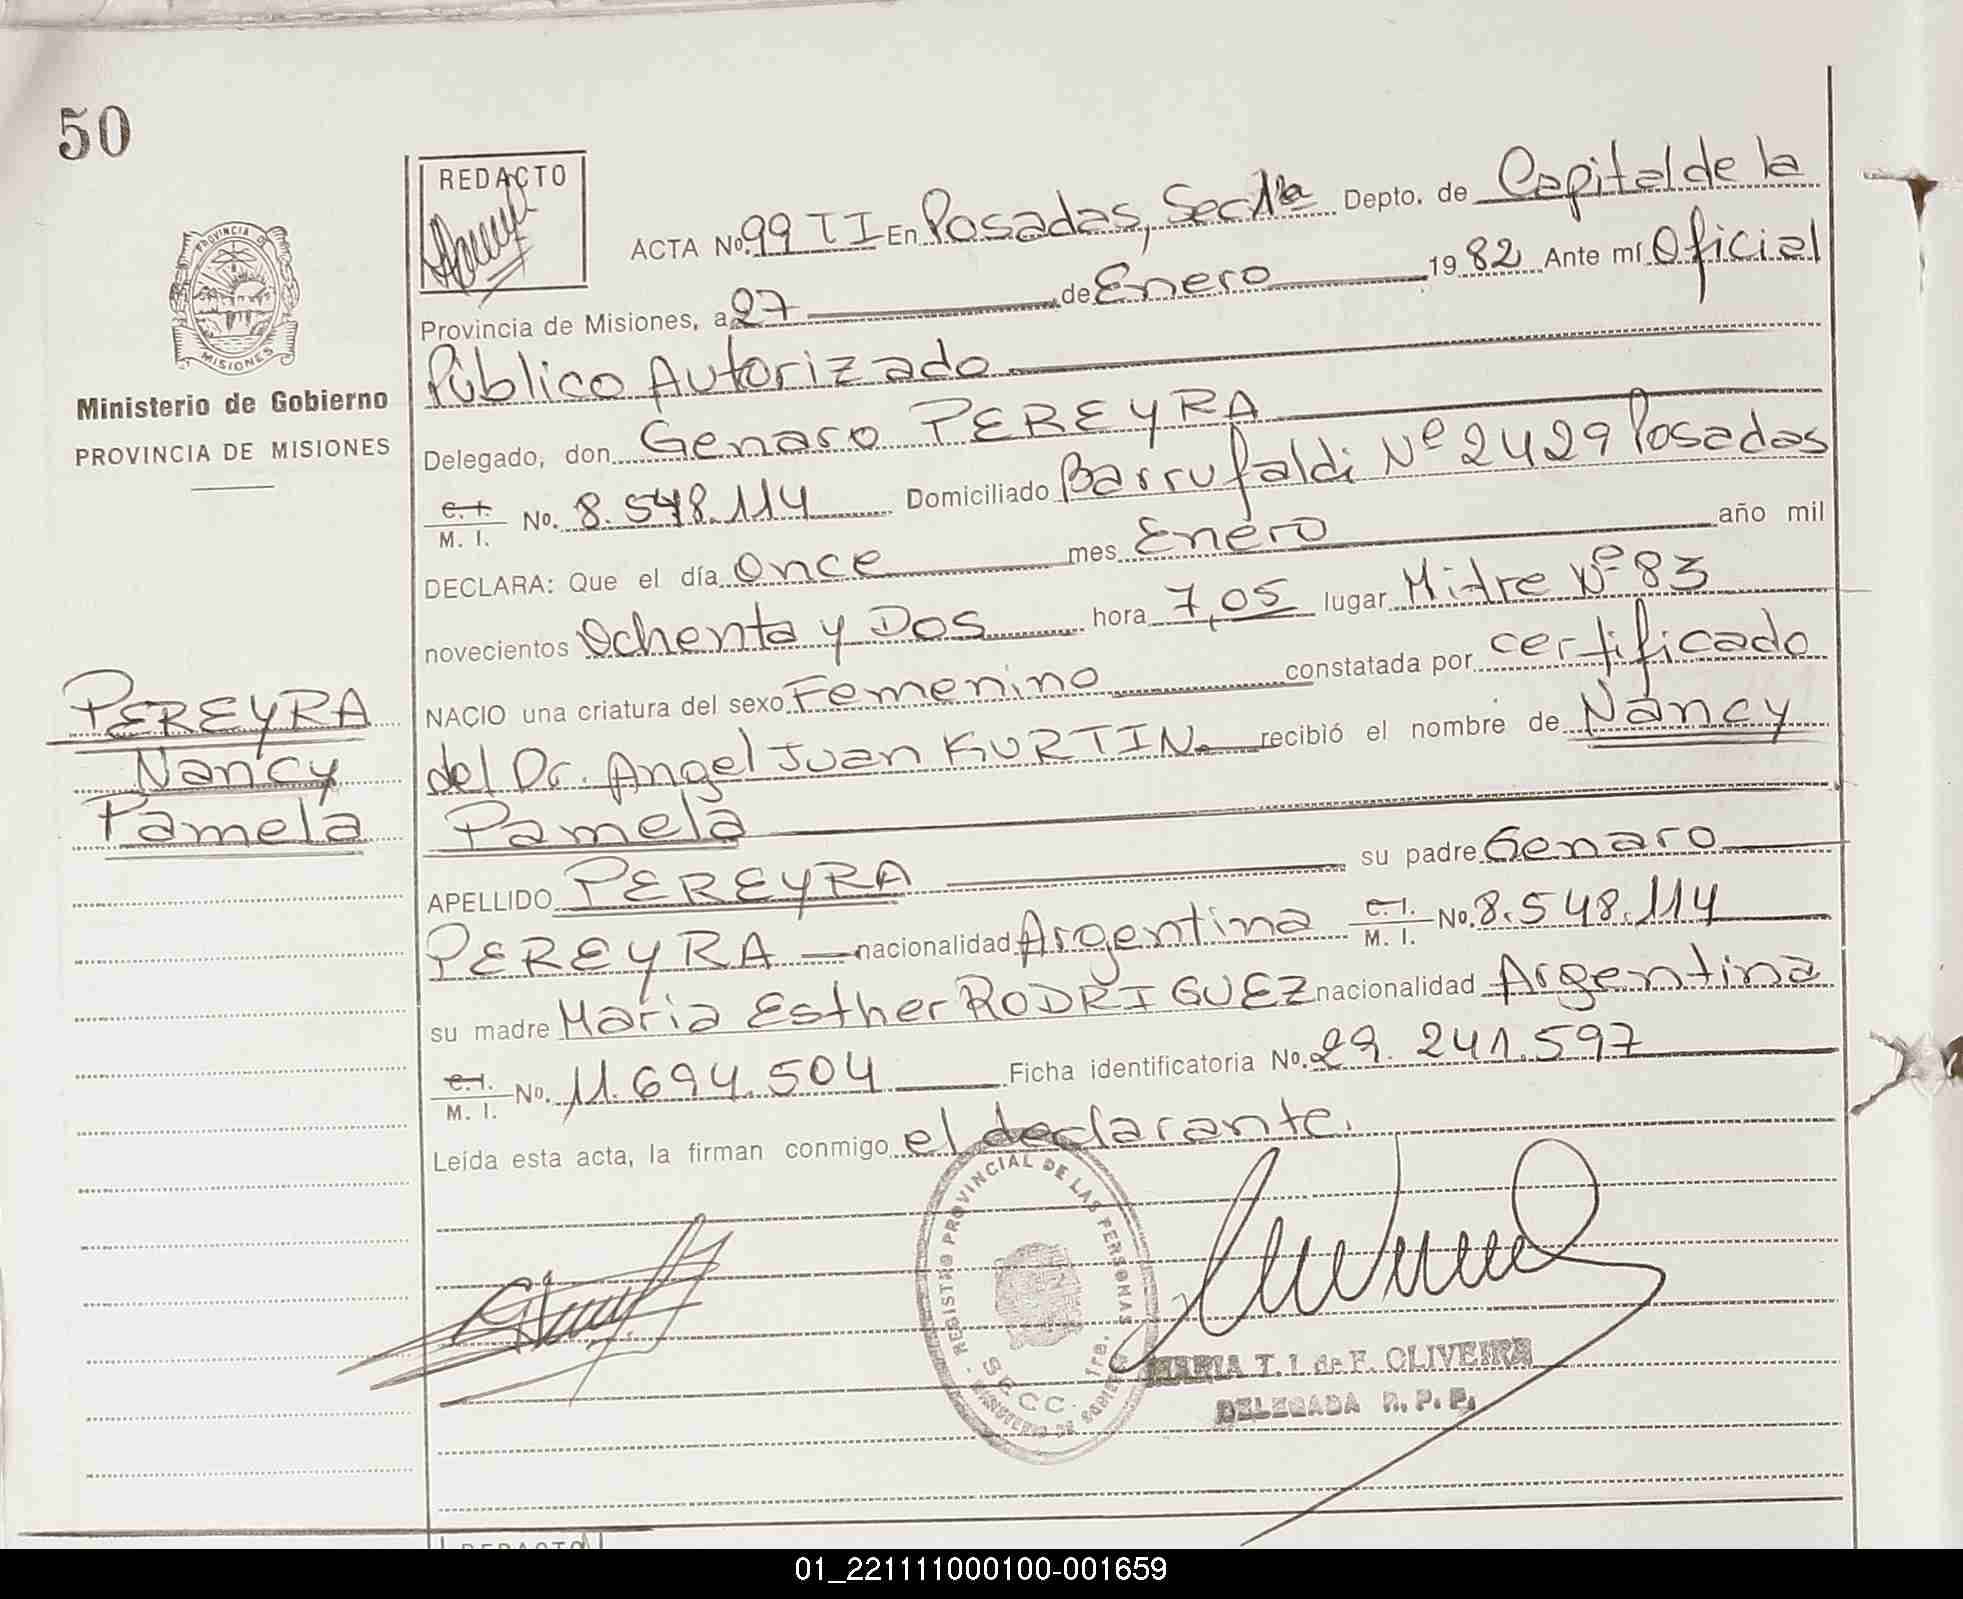 50
REDACTO
ACTA No. 99 TI En Posadas, Sec 1ra Depto. de Capital de la
Provincia de Misiones, a 27 de Enero 1982 Ante mí Oficial
Público Autorizado
Delegado, don Genaro PEREYRA
C. I. M. I. No. 8.548.114 Domiciliado Barrufaldi Nº 2429 Posadas
DECLARA: Que el día once mes Enero año mil
novecientos Ochenta y Dos hora 7,05 lugar Mitre Nº 83
NACIO una criatura del sexo Femenino constatada por certificado
del Dr. Angel Juan KURTIN. recibió el nombre de Nancy
Pamela
APELLIDO PEREYRA su padre Genaro
PEREYRA nacionalidad Argentina C. I. M. I. No. 8.548.114
su madre Maria Esther RODRIGUEZ nacionalidad Argentina
C. I. M. I. No. 11.694.504 Ficha identificatoria No. 29.241.597
Leída esta acta, la firman conmigo el declarante.
PROVINCIA DE MISIONES
Ministerio de Gobierno
PROVINCIA DE MISIONES
PEREYRA
Nancy
Pamela
REGISTRO PROVINCIAL DE LAS PERSONAS
SECC. 1ra.
MINISTERIO DE GOBIERNO
MARIA T. I. de F. OLIVEIRA
DELEGADA R. P. P.
REDACTO
01_221111000100-001659